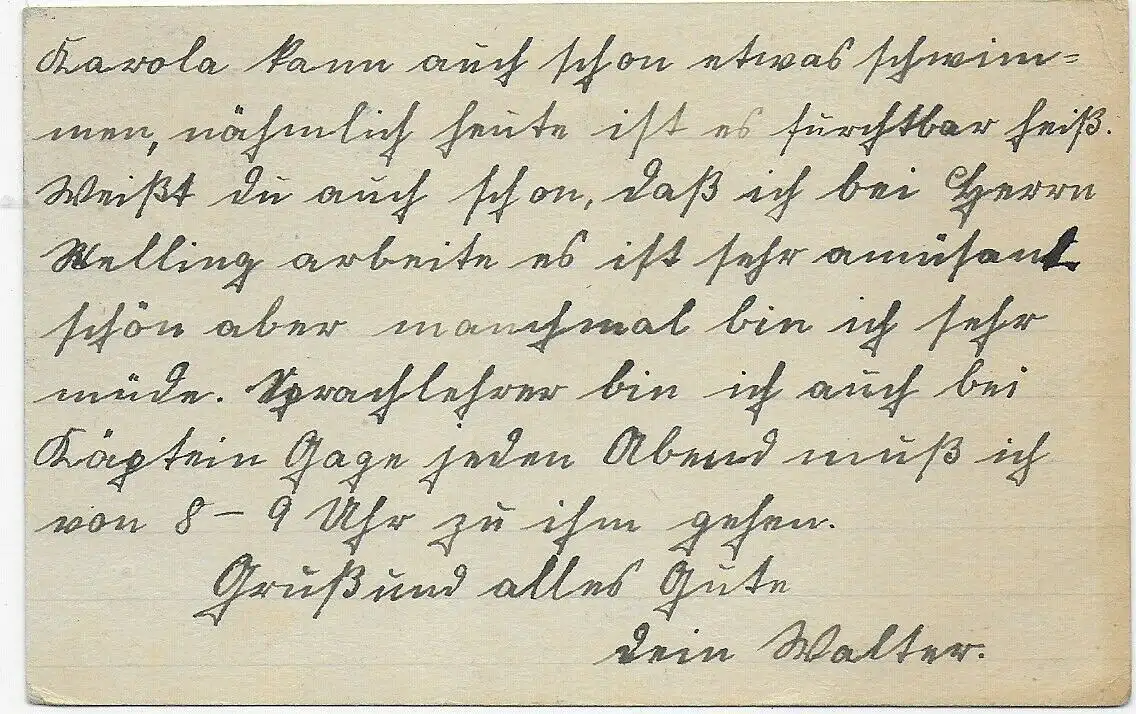 Karola kann auch schon etwas schwim=
men, nähmlich heute ist es furchtbar heiß.
Weißt du auch schon, daß ich bei Herrn
Welling arbeite es ist sehr amüsant
schön aber manchmal bin ich sehr
müde. Sprachlehrer bin ich auch bei
Käptein Gage jeden Abend muß ich
von 8 – 9 Uhr zu ihm gehen.
Gruß und alles Gute
dein Walter.